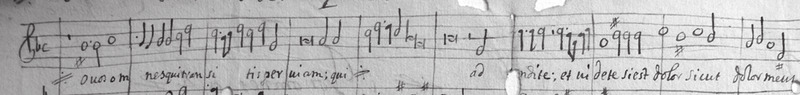 ouos om nesquitransi tis per uiam; qui ad ndite; et uidete si est dolor sicut dolor meus